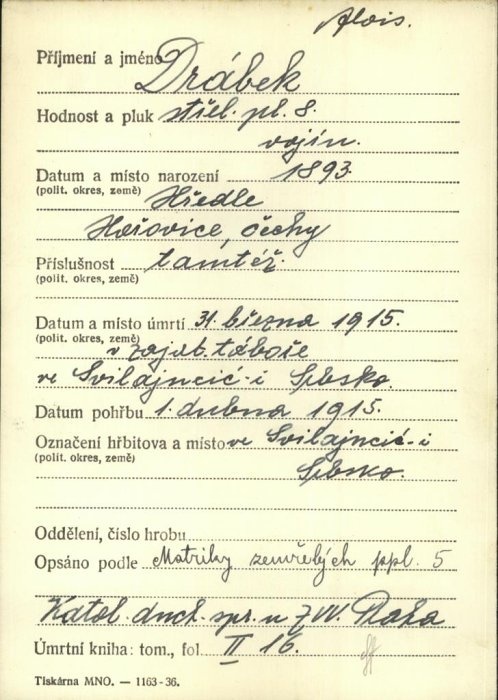 Alois.
Příjmení a jméno Drábek
Hodnost a pluk střel. pl. 8.
vojín.
Datum a místo narození 1893.
(polit. okres, země) Hředle
Hořovice, Čechy
Příslušnost tamtéž.
(polit. okres, země)
Datum a místo úmrtí 31. března 1915.
(polit. okres, země) v zajat. táboře
ve Svilajncić-i Srbsko.
Datum pohřbu 1. dubna 1915.
Označení hřbitova a místo ve Svilajncić-i
(polit. okres, země) Srbsko.
Oddělení, číslo hrobu
Opsáno podle Matriky zemřelých ppl. 5
Katol. duch. spr. u ZVV. Praha
Úmrtní kniha: tom., fol. II 16.
Tiskárna MNO. — 1163-36.